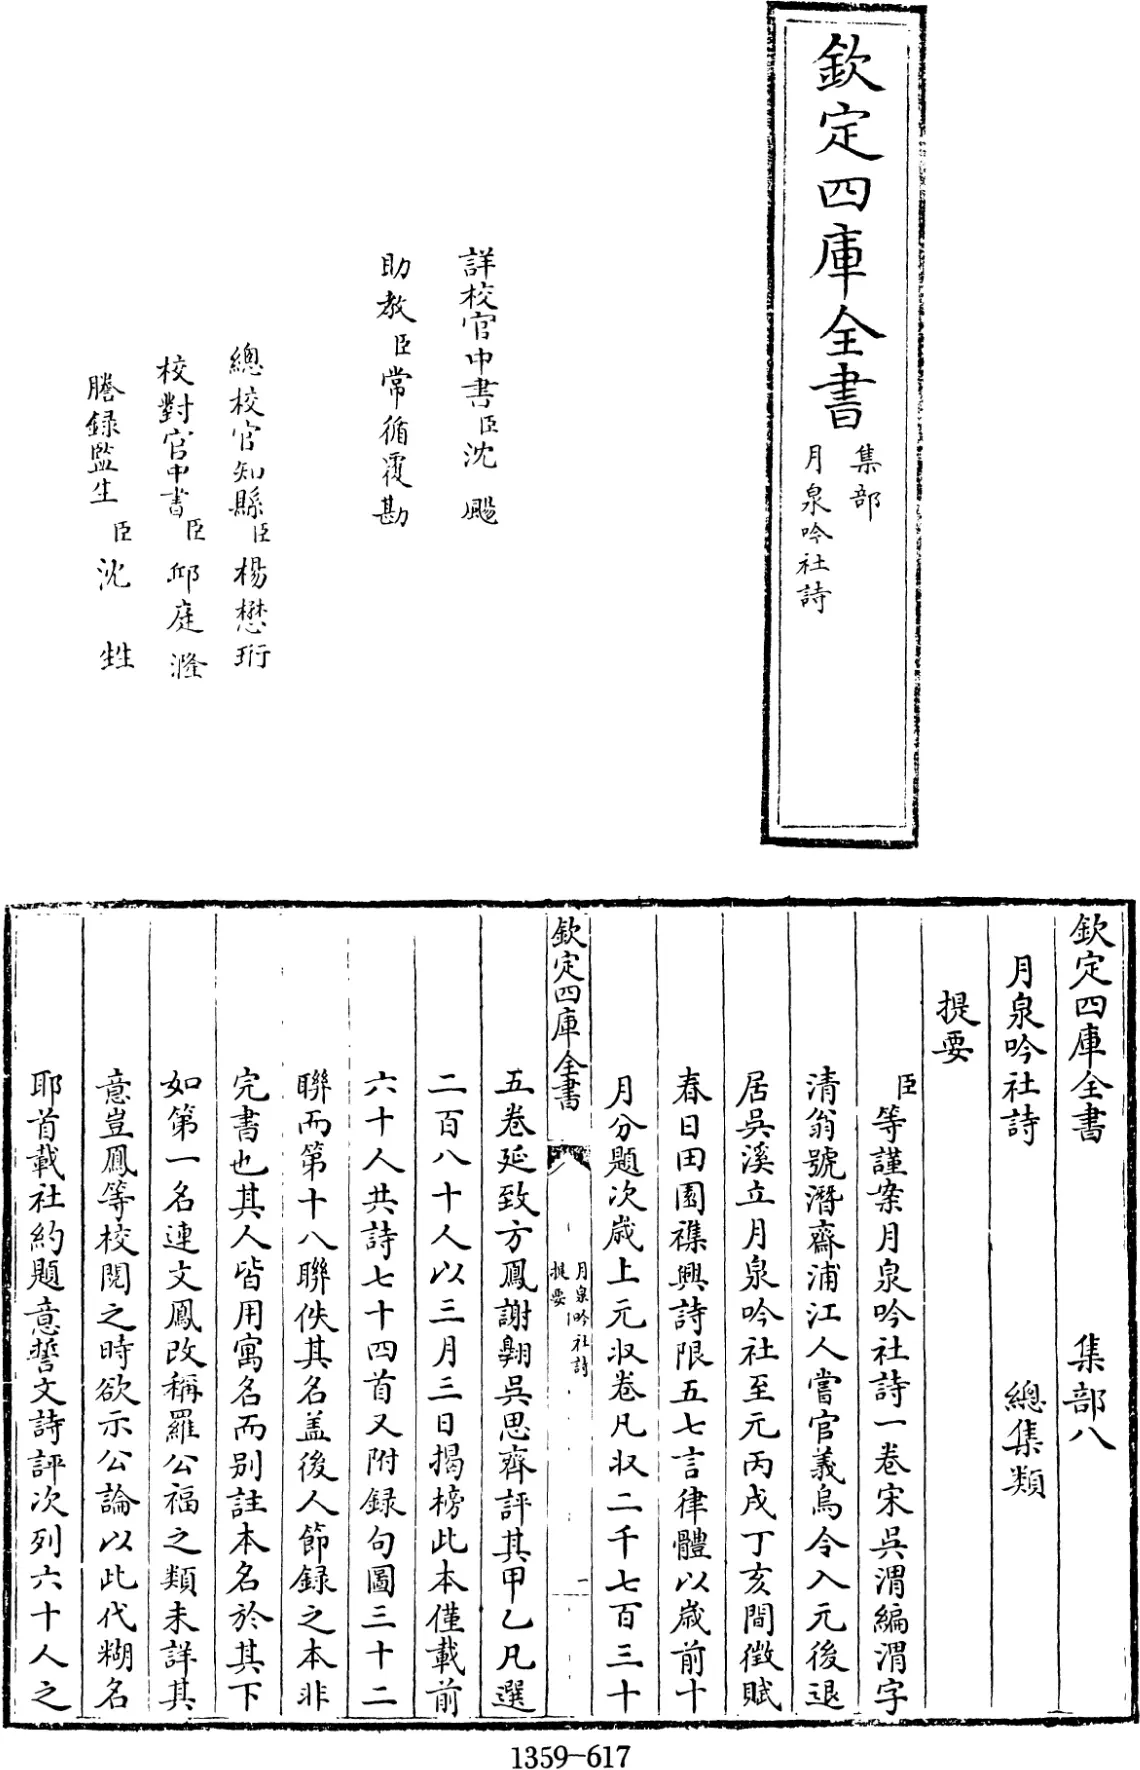 欽定四庫全書
集部
月泉吟社詩
詳校官中書臣沈颺
助教臣常循覆勘
總校官知縣臣楊懋珩
校對官中書臣邱庭漋
謄錄監生臣沈甡
欽定四庫全書 集部八
月泉吟社詩 總集類
提要
臣等謹案月泉吟社詩一卷宋吳渭編渭字
清翁號潛齋浦江人嘗官義烏令入元後退
居吳溪立月泉吟社至元丙戌丁亥間徵賦
春日田園襍興詩限五七言律體以歲前十
月分題次歲上元収卷凡収二千七百三十
欽定四庫全書
月泉吟社詩
提要
一
五卷延致方鳳謝翱吳思齊評其甲乙凡選
二百八十人以三月三日揭榜此本僅載前
六十人共詩七十四首又附録句圖三十二
聯而第十八聯佚其名盖後人節録之本非
完書也其人皆用寓名而別註本名於其下
如第一名連文鳳改稱羅公福之類未詳其
意豈鳳等校閱之時欲示公論以此代糊名
耶首載社約題意誓文詩評次列六十人之
1359-617